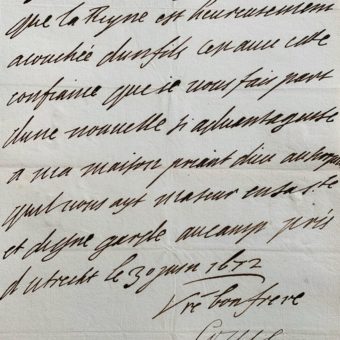 que la Reyne est heureusement
acouchée dun fils cest avec cette
confiance que je vous fais part
dune nouvelle si advantageuse
a ma maison priant dieu au surplus
quil vous ayt mr mon frere en sa ste
et digne garde au camp prés
d'utrecht le 30 juin 1672
Vre bon frere
Louis